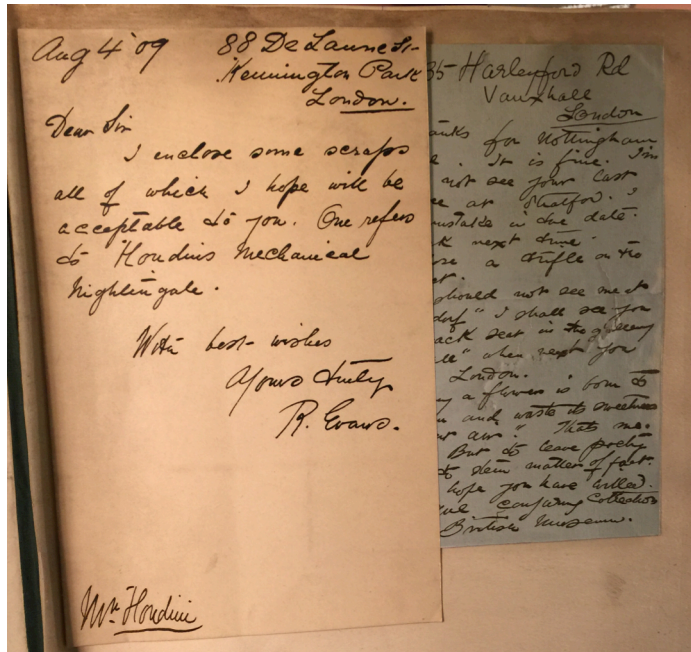 Aug 4 '09
88 De Laune St-
Kennington Park
London.
Dear Sir
I enclose some scraps
all of which I hope will be
acceptable to you. One refers
to Houdin's Mechanical
Nightingale.
With best- wishes
Yours truly
R. Evans.
Mr. Houdini
35 Harleyford Rd
Vauxhall
London
anks for Nottingham
e. It is fine. I'm
not see your last
e at Shalford. I
mistake in the date.
k next time.
se a trifle on the
should not see me at
" I shall see you
ack seat in the gallery
" when next you
London.
y a flower is born to
and waste its sweetness
air." That's me.
But to leave poetry
to stern matter of fact.
hope you have willed
conjuring Collection
British Museum.